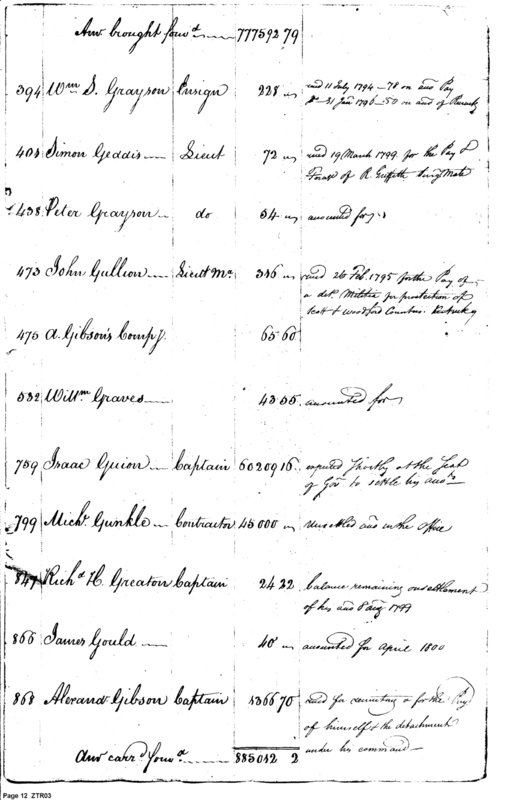 Amt brought forwd 777592 79
394 Wm S. Grayson Ensign 228 „ recd 11 July 1794 – 78 on acct Pay
Do 31 Jan 1796 – 50 on acct of Recruitg
404 Simon Geddis Lieut 72 „ recd 19 March 1799 for the Pay &
Forage of R. Griffith Surgs Mate
438 Peter Grayson do 54 „ accounted for
473 John Gullion Lieutt Ma 346 „ recd 26 Feb. 1795 for the Pay of
a det. Militia for protection of
Scott & Woodford Counties Kentucky
475 A. Gibson's Compy. 65 60
532 Willm Graves 43 55 accounted for
759 Isaac Guion Captain 60209 16 expected shortly at the Seat
of Govt to settle his accts
799 Michl. Gunkle Contractor 45000 „ Unsettled accts in the Office
847 Richd H. Greaton Captain 24 22 balance remaining on settlement
of his acct 8 Aug 1799
866 James Gould 40 „ accounted for April 1800
868 Alexandr Gibson Captain 1366 70 recd for recruiting & for the Pay
of himself & the detachment
under his command
Amt carrd forwd 885042 2
Page 12 ZTR03